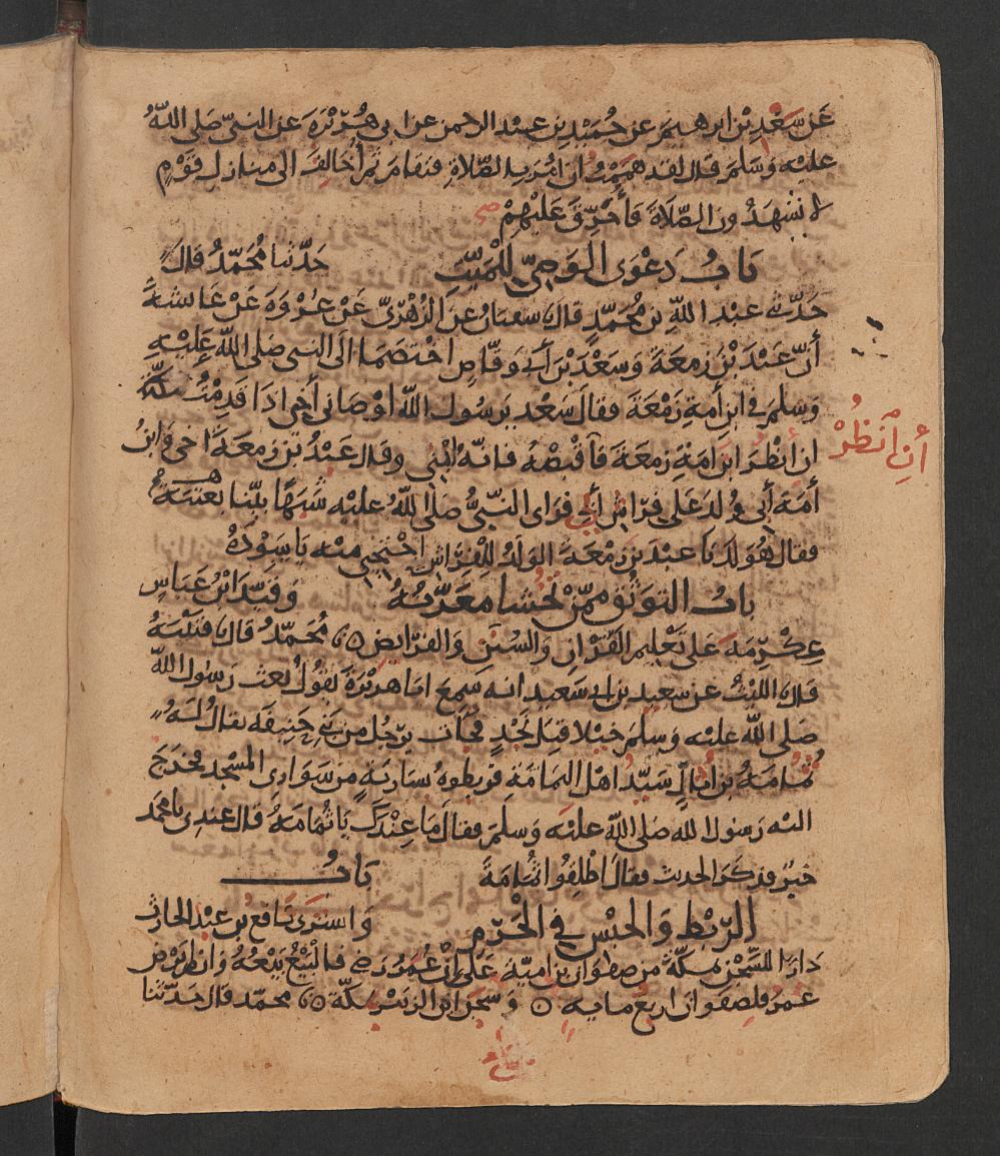 عَن سَعْدِ بْنِ ابرهيم عن حُمَيْدِ بن عبد الرحمن عن ابى هُرَيْرَةَ عن النبىّ صَلى اللهُ
عليه وَسَلم قال لقد هممْتُ ان اٰمُرَ بالصّلاةِ فتقام ثم أُخالِفَ الى منازل قَوْمٍ
لا يَشْهَدُون الصّلَاةَ فَأُحَرِّقَ عَلَيْهِمْ صح
بَابُ دَعْوَى الوَصِىّ لِلْمَيِّتِ حَدّثنا مُحَمّدٌ قال
حَدّثنى عبْد الله بن مُحَمّدٍ قال سفيان عن الزُهْرِىّ عَنْ عُرْوَةَ عَنْ عَائشةَ
أنّ عَبْدَ بْنَ زمعَةَ وَسَعْدَ بْنَ أَبى وَقّاصٍ اخْتَصَمَا الَى النبى صَلى الله عَلَيْهِ
وَسلم فى ابن أَمةِ زَمْعَةَ فقال سَعْد يَرسُول اللهِ اوْصَانى أخى اذَا قَدِمْتُ مَكّةَ
ان انْظُرَ ابن امَةِ زمعَةَ فَأقْبضْهُ فانّه ابْنِى وقال عَبْدُ بن زمعَةَ اخى وَابنُ
أنِ ٱنْظُرْ
أمَةِ أبى وُلدَ عَلَى فِرَاشِ أبى فرَاى النّبىُّ صَلى اللهُ عليْه شَبَهًا بيّنا بعُتبَةَ
فقال هُوَ لكَ يَا عبْدَ بن زَمْعَةَ الوَلَدُ لِلْفِرَاشِ احْتجِبى منْه يَا سَوْدَةُ
بابُ التوَثّق مِمّنْ تُخْشا مَعَرّتُهُ وَقَيّدَ ابْنُ عَبّاسٍ
عِكْرِمَة عَلى تَعْلِيمِ القُرْانِ وَالسُنَن وَالفَرَايض مُحَمّدٌ قال قتَيْبَةُ
قال الليْثُ عن سَعِيدِ بن ابى سَعيد انه سَمعَ ابا هريْرَةَ يَقُولُ بعث رَسُول اللهِ
صَلى الله عليْه وَسلم خيْلا قِبَلَ نَجْدٍ فجَات برَجُل من بَنِى حَنِيفَة يقالُ لَهُ
ثُمَامَةُ بن أُثالٍ سَيّدُ اهْل اليمَامَةِ فرَبطوهُ بسَاريَةٍ مِن سَوَارِى المَسْجد فخرَجَ
اليْه رَسُول الله صَلى الله عليْه وَسلم فقالَ مَا عِنْدَكَ يَا ثُمَامَةُ قال عِندِى يا محمد
خيْرٌ فذكَرَ الحديث فقالَ اطْلِقُوا ثُمَامَةَ بَابُ
الرّبْط وَالحبْس فى الْحَرَمِ وَاشترَى نَافع بن عَبْد الحَارِث
دارًا للسِّجْن بمكّة من صفوَان بن اميّة عَلَى انْ عُمَر رَضى فالبَيْعُ بَيْعُهُ وَان لم يَرْضَ
عمَر فلصفوان اربع مايه وَسجَن ابن الزبَيْر بمكّة محمّد قال حَدّثنا
بلغ